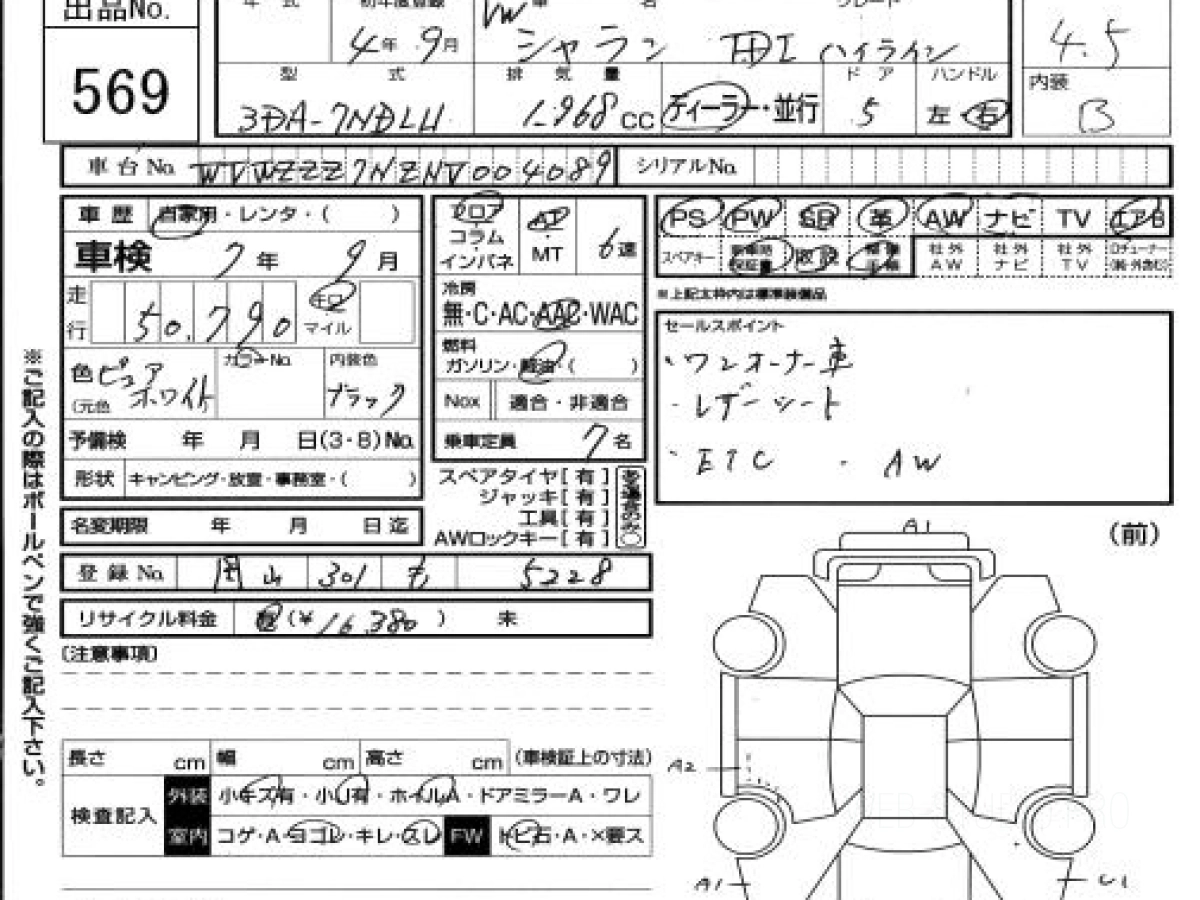 出品No.
569
年 式 初年度登録 車 名 グレード
VW
4年 9月 シャラン TDI ハイライン 4.5
型 式 排 気 量 ド ア ハンドル 内装
3DA-7NDLU 1.968cc ディーラー・並行 5 左・右 B
車台No. WVWZZZ7NZNV004089 シリアルNo.
車 歴 自家用・レンタ・( )
車検 7年 9月
走行 50.790 キロ マイル
色 ピュアホワイト (元色 カラーNo. 内装色 ブラック
予備検 年 月 日(3・8)No.
形状 キャンピング・放宣・事務室・( )
名変期限 年 月 日迄
フロア・コラム・インパネ AT・MT 6速
冷房
無・C・AC・AAC・WAC
燃料
ガソリン・軽油・( )
Nox 適合・非適合
乗車定員 7名
スペアタイヤ[ 有 ]
ジャッキ[ 有 ]
工具[ 有 ]
AWロックキー[ 有 ]
有る場合のみ○
PS PW SR 革 AW ナビ TV エアB
スペアキー 新車時保証書 取説 記録 社外AW 社外ナビ 社外TV
※上記太枠内は標準装備品
セールスポイント
・ワンオーナー車
・レザーシート
・ETC ・AW
登録No. 岡山 301 も 5228
リサイクル料金 (¥16,380 ) 未
(注意事項)
長さ cm 幅 cm 高さ cm (車検証上の寸法)
検査記入
外装 小キズ有・小U有・ホイルA・ドアミラーA・ワレ
室内 コゲ・A・ヨゴレ・キレ・スレ FW トビ石・A・×要ス
※ご記入の際はボールペンで強くご記入下さい。
(前)
A1
A2
A1
U1